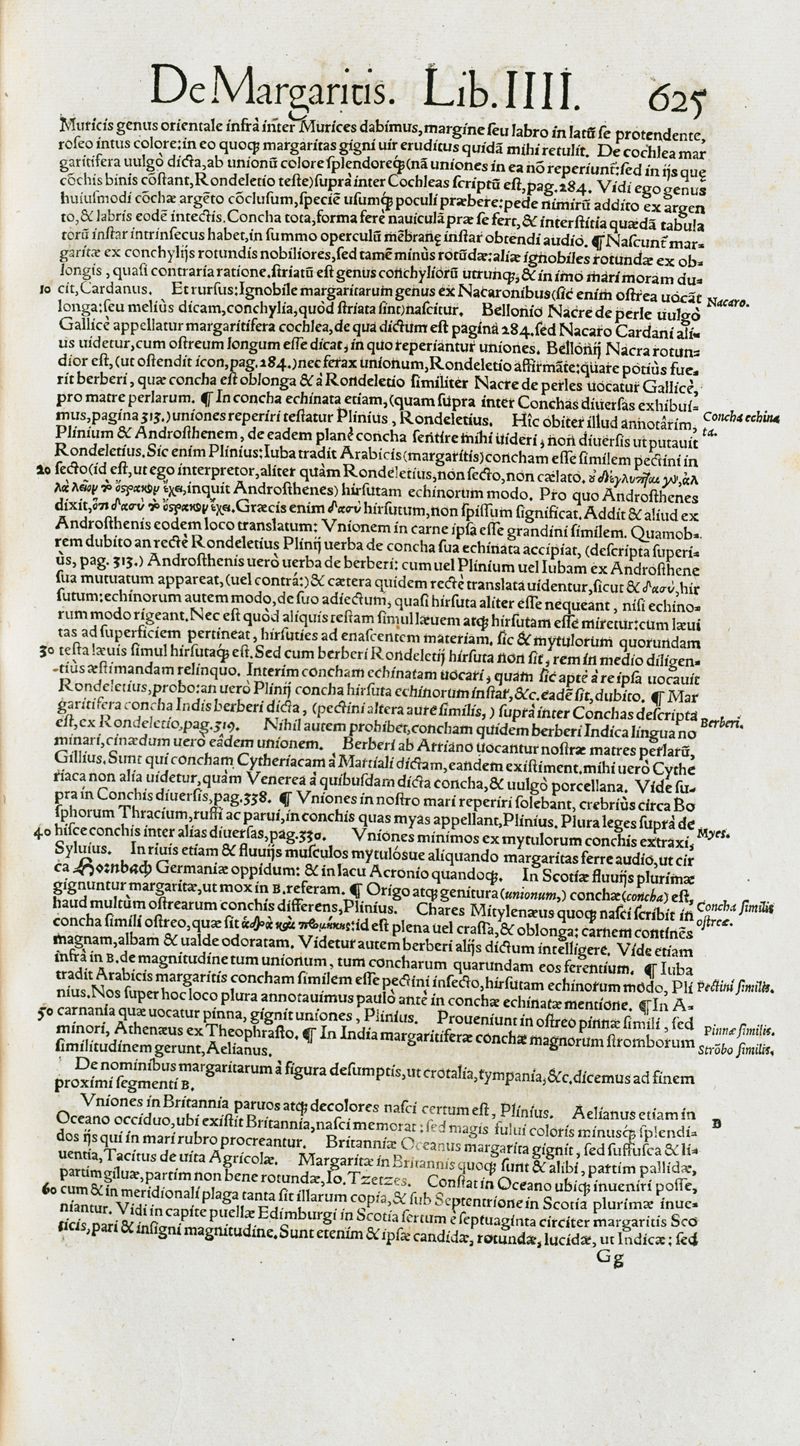 De Margaritis. Lib. IIII. 625
Muricis genus orientale infrà inter Murices dabimus, margine seu labro in latũ se protendente,
roseo intus colore: in eo quoqꝫ margaritas gigni uir eruditus quidã mihi retulit. De cochlea mar
garitifera uulgò dicta, ab unionũ colore splendoreqꝫ (nã uniones in ea nõ reperiunt: sed in ijs que
cõchis binis cõstant, Rondeletio teste) suprà inter Cochleas scriptũ est, pag. 284. Vidi ego genus
huiusmodi cõchæ argẽto cõclusum, speciẽ usumqꝫ poculi præbere: pede nimirũ addito ex argen
to, & labris eodẽ intectis. Concha tota, forma ferè nauiculã præ se fert, & interstitia quædã tabula
torũ instar intrinsecus habet, in summo operculũ mẽbranę instar obtendi audio. ¶ Nascunt mar-
garitæ ex conchylijs rotundis nobiliores, sed tamẽ minùs rotũdæ: aliæ ignobiles rotundæ ex ob-
longis, quasi contraria ratione. striatũ est genus conchyliorũ utrunqꝫ, & in imo mari moram du-
10 cit, Cardanus. Et rursus: Ignobile margaritarum genus ex Nacaronibus (sic enim ostrea uocãt
Nacaro.
longa: seu meliùs dicam, conchylia, quòd striata sint) nascitur. Bellonio Nacre de perle uulgò
Gallicè appellatur margaritifera cochlea, de qua dictum est pagina 284. sed Nacaro Cardani ali-
us uidetur, cum ostreum longum esse dicat, in quo reperiantur uniones. Bellonij Nacra rotun-
dior est, (ut ostendit icon, pag. 284.) nec ferax unionum, Rondeletio affirmãte: quare potiùs fue-
rit berberi, quæ concha est oblonga & à Rondeletio similiter Nacre de perles uocatur Gallicè,
pro matre perlarum. ¶ In concha echinata etiam, (quam supra inter Conchas diuersas exhibui-
mus, pagina 313.) uniones reperiri testatur Plinius, Rondeletius. Hîc obiter illud annotârim,
Concha echina
ta.
Plinium & Androsthenem, de eadem planè concha sentire mihi uideri, non diuersis ut putauit
Rondeletius. Sic enim Plinius: Iuba tradit Arabicis (margaritis) concham esse similem pectini in
20 secto (id est, ut ego interpretor, aliter quàm Rondeletius, non secto, non cælato. ὀ διέγλυπται γὰρ, ἀλ
λὰ λεῖον τὸ ὄστρακον ἔχει, inquit Androsthenes) hirsutam echinorum modo. Pro quo Androsthenes
dixit, ὅτι δασὺ τὸ ὄστρακον ἔχει. Græcis enim δασὺ hirsutum, non spissum significat. Addit & aliud ex
Androsthenis eodem loco translatum: Vnionem in carne ipsa esse grandini similem. Quamob-
rem dubito an rectè Rondeletius Plinij uerba de concha sua echinata accipiat, (descripta superi-
ùs, pag. 313.) Androsthenis uerò uerba de berberi: cum uel Plinium uel Iubam ex Androsthene
sua mutuatum appareat, (uel contrà:) & cætera quidem rectè translata uidentur, sicut & δασὺ, hir
sutum: echinorum autem modo, de suo adiectum, quasi hirsuta aliter esse nequeant, nisi echino-
rum modo rigeant. Nec est quòd aliquis testam simul læuem atqꝫ hirsutam esse miretur: cum læui
tas ad superficiem pertineat, hirsuties ad enascentem materiam, sic & mytulorum quorundam
30 testa læuis simul hirsutaqꝫ est. Sed cum berberi Rondeletij hirsuta non sit, rem in medio diligen-
tius æstimandam relinquo. Interim concham echinatam uocari, quam sic aptè à re ipsa uocauit
Rondeletius, probo: an uerò Plinij concha hirsuta echinorum instar, &c. eadẽ sit, dubito. ¶ Mar
garitifera concha Indis berberi dicta, (pectini altera aure similis,) suprà inter Conchas descripta
est, ex Rondeletio, pag. 319. Nihil autem prohibet, concham quidem berberi Indica lingua no
Berberi.
minari, cinædum uerò eâdem unionem. Berberi ab Arriano uocantur nostræ matres perlarũ,
Gillius. Sunt qui concham Cytheriacam à Martiali dictam, eandem existiment. mihi uerò Cythe
riaca non alia uidetur, quàm Venerea à quibusdam dicta concha, & uulgò porcellana. Vide su-
pra in Conchis diuersis, pag. 338. ¶ Vniones in nostro mari reperiri solebant, crebriùs circa Bo
sphorum Thracium, ruffi ac parui, in conchis quas myas appellant, Plinius. Plura leges suprà de
Myes.
40 hisce conchis inter alias diuersas, pag. 330. Vniones minimos ex mytulorum conchis extraxi,
Syluius. In riuis etiam & fluuijs musculos mytulósue aliquando margaritas ferre audio, ut cir
ca Hornbach Germaniæ oppidum: & in lacu Acronio quandoqꝫ. In Scotiæ fluuijs plurimæ
gignuntur margaritæ, ut mox in B. referam. ¶ Origo atqꝫ genitura (unionum,) conchæ (concha) est,
haud multùm ostrearum conchis differens, Plinius. Chares Mitylenæus quoqꝫ nasci scribit in
Concha similis
ostreæ.
concha simili ostreo, quæ sit ἁδρὰ καὶ προμήκης: id est plena uel crassa, & oblonga: carnem continẽs
magnam, albam & ualde odoratam. Videtur autem berberi alijs dictum intelligere. Vide etiam
infrà in B. de magnitudine tum unionum, tum concharum quarundam eos ferentium. ¶ Iuba
tradit Arabicis margaritis concham similem esse pectini insecto, hirsutam echinorum modo, Pli
Pectini similis.
nius. Nos super hoc loco plura annotauimus paulò antè in conchæ echinatæ mentione. ¶ In A-
50 carnania quæ uocatur pinna, gignit uniones, Plinius. Proueniunt in ostreo pinnæ simili, sed
Pinnæ similis.
minori, Athenæus ex Theophrasto. ¶ In India margaritiferæ conchæ magnorum stromborum
Strõbo similis.
similitudinem gerunt, Aelianus.
De nominibus margaritarum à figura desumptis, ut crotalia, tympania, &c. dicemus ad finem
proximi segmenti B.
Vniones in Britannia paruos atqꝫ decolores nasci certum est, Plinius. Aelianus etiam in
B
Oceano occiduo, ubi existit Britannia, nasci memorat: sed magis fului coloris minusqꝫ splendi-
dos ijs qui in mari rubro procreantur. Britanniæ Oceanus margarita gignit, sed suffusca & li-
uentia, Tacitus de uita Agricolæ. Margaritæ in Britannis quoqꝫ sunt & alibi, partim pallidæ,
partim giluæ, partim non bene rotundæ, Io. Tzetzes. Constat in Oceano ubiqꝫ inueniri posse,
60 cum & in meridionali plaga tanta sit illarum copia, & sub Septentrione in Scotia plurimæ inue-
niantur. Vidi in capite puellæ Edimburgi in Scotia sertum è septuaginta circiter margaritis Sco
ticis, pari & insigni magnitudine. Sunt etenim & ipsæ candidæ, rotundæ, lucidæ, ut Indicæ: sed
Gg